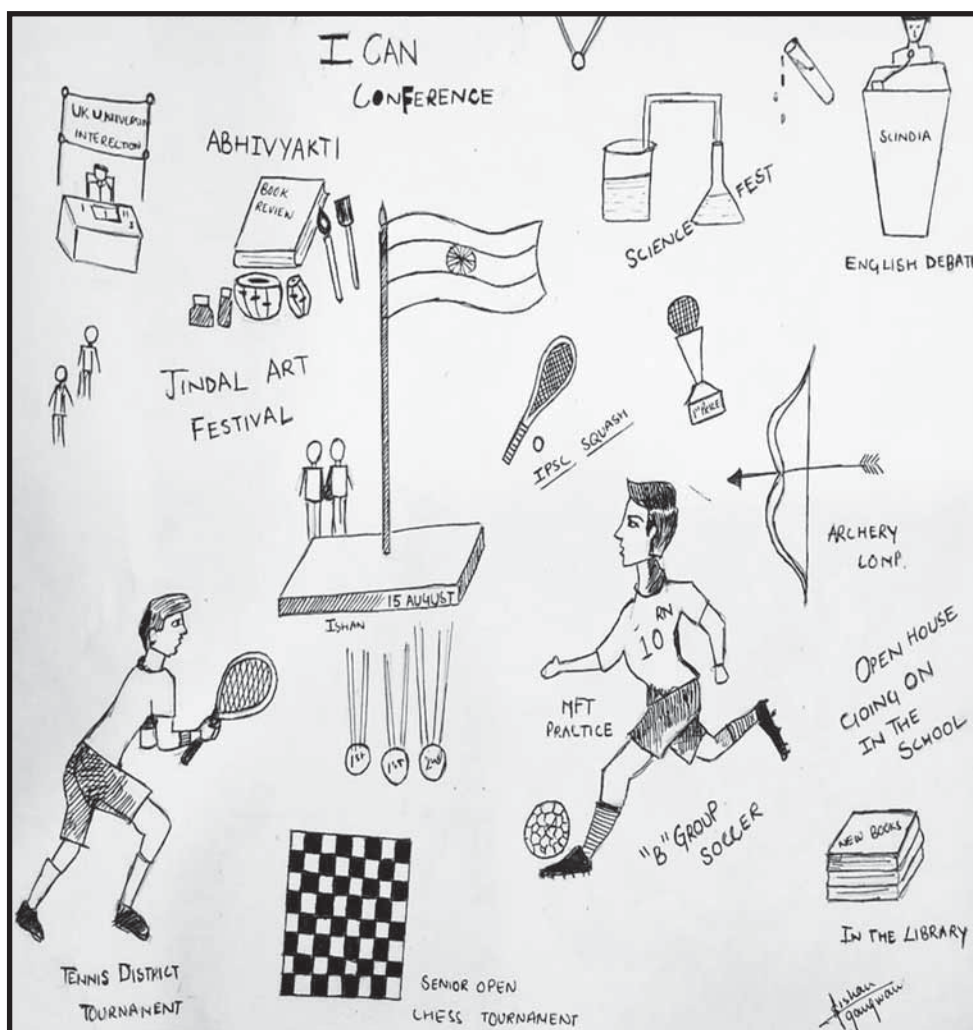 I CAN
CONFERENCE
UK UNIVERSIT
INTERECTION
ABHIVYAKTI
BOOK
REVIEW
SCIENCE FEST
SCINDIA
ENGLISH DEBATE
JINDAL ART
FESTIVAL
IPSC SQUASH
1st PRIZE
ARCHERY
COMP.
15 AUGUST
ISHAN
RN
10
MFT
PRACTICE
OPEN HOUSE
GOING ON
IN THE
SCHOOL
1st
1st
2nd
"B" GROUP
SOCCER
NEW BOOKS
IN THE LIBRARY
TENNIS DISTRICT
TOURNAMENT
SENIOR OPEN
CHESS TOURNAMENT
gangwani